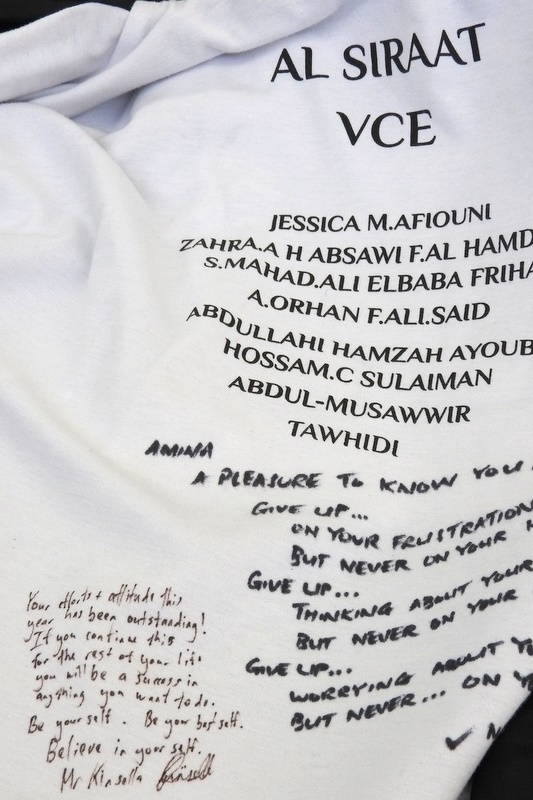 AL SIRAAT
VCE
JESSICA M.AFIOUNI
ZAHRA.A H ABSAWI F.AL HAMD
S.MAHAD.ALI ELBABA FRIHA
A.ORHAN F.ALI.SAID
ABDULLAHI HAMZAH AYOUB
HOSSAM.C SULAIMAN
ABDUL-MUSAWWIR
TAWHIDI
AMINA
A PLEASURE TO KNOW YOU
GIVE UP...
ON YOUR FRUSTRATION
BUT NEVER ON YOUR
GIVE UP...
THINKING ABOUT YOUR
BUT NEVER ON YOUR
GIVE UP...
WORRYING ABOUT
BUT NEVER... ON
Your efforts + attitude this
year has been outstanding!
If you continue this
for the rest of your life
you will be a success in
anything you want to do.
Be yourself. Be your best self.
Believe in your self.
Mr Kinsella